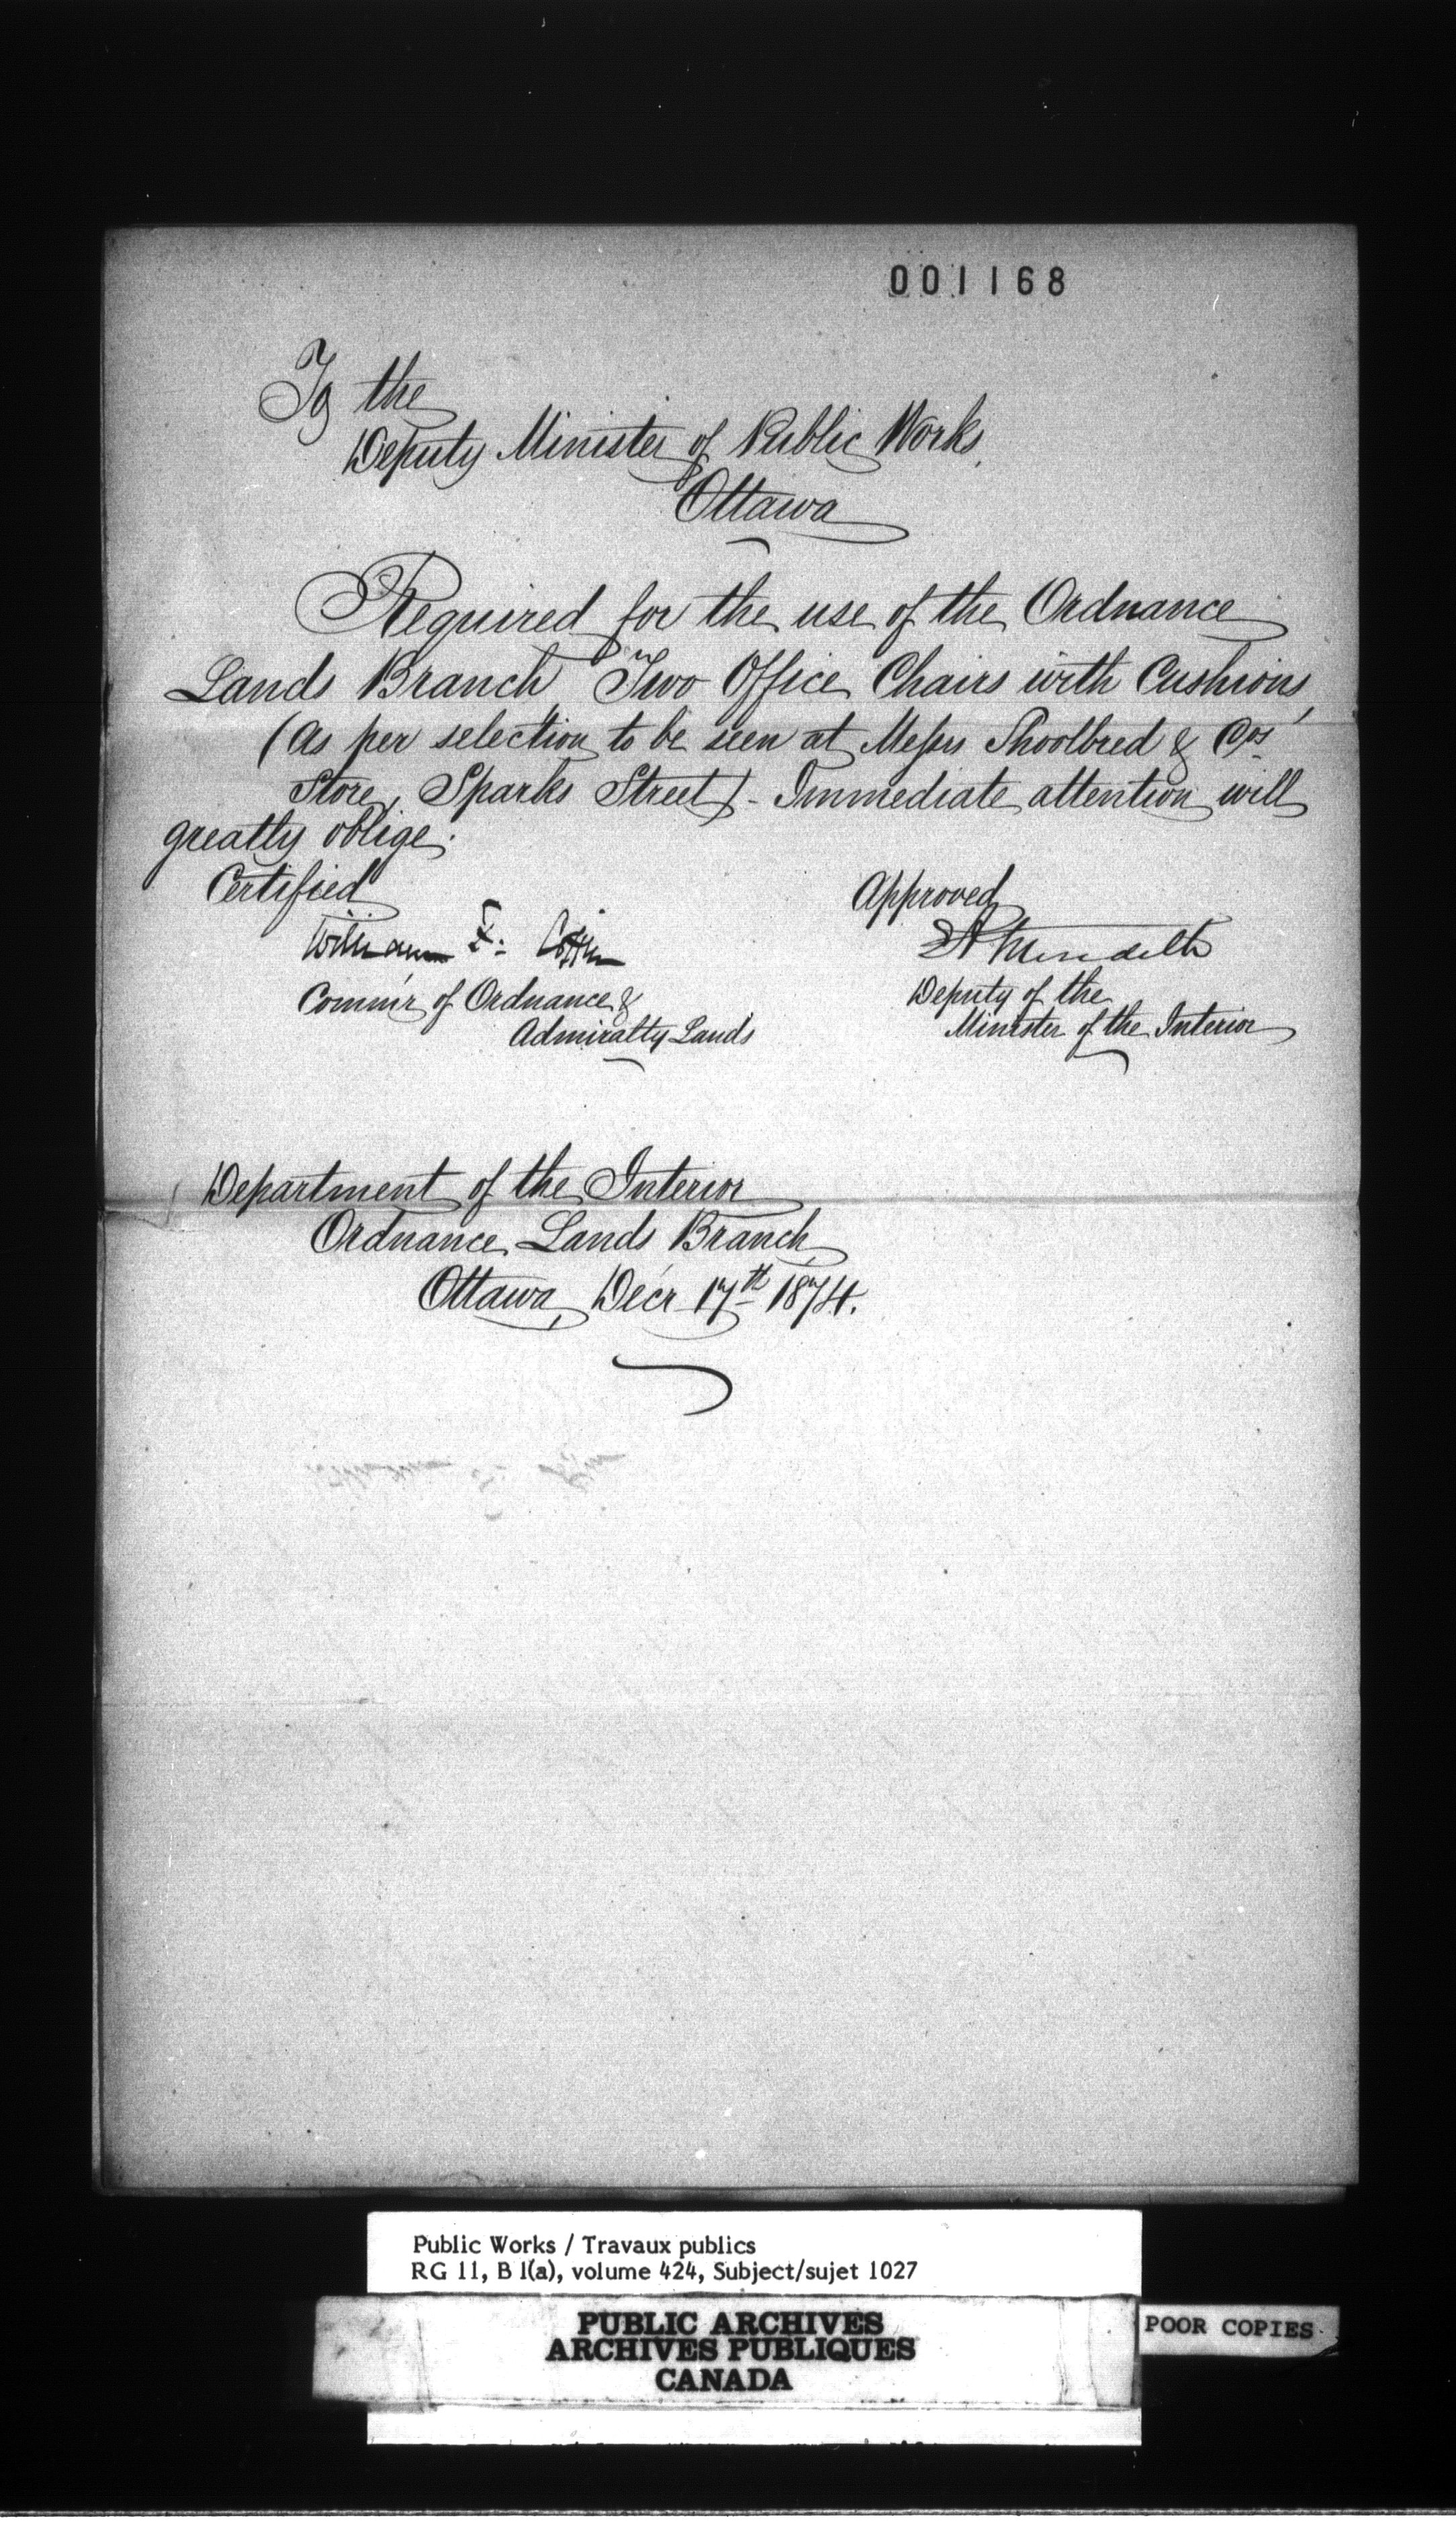 001168
To the
Deputy Minister of Public Works,
Ottawa
Required for the use of the Ordnance
Lands Branch Two Office Chairs with Cushions,
(as per selection to be seen at Messrs Shoolbred & Cos'
Store, Sparks Street) - Immediate attention will
greatly oblige.
Certified
William F: Coffin
Commr of Ordnance &
Admiralty Lands
Approved
EA Meredith
Deputy of the
Minister of the Interior
Department of the Interior
Ordnance Lands Branch
Ottawa, Decr 17th 1874.
Public Works / Travaux publics
RG 11, B 1(a), volume 424, Subject/sujet 1027
PUBLIC ARCHIVES
ARCHIVES PUBLIQUES
CANADA
POOR COPIES